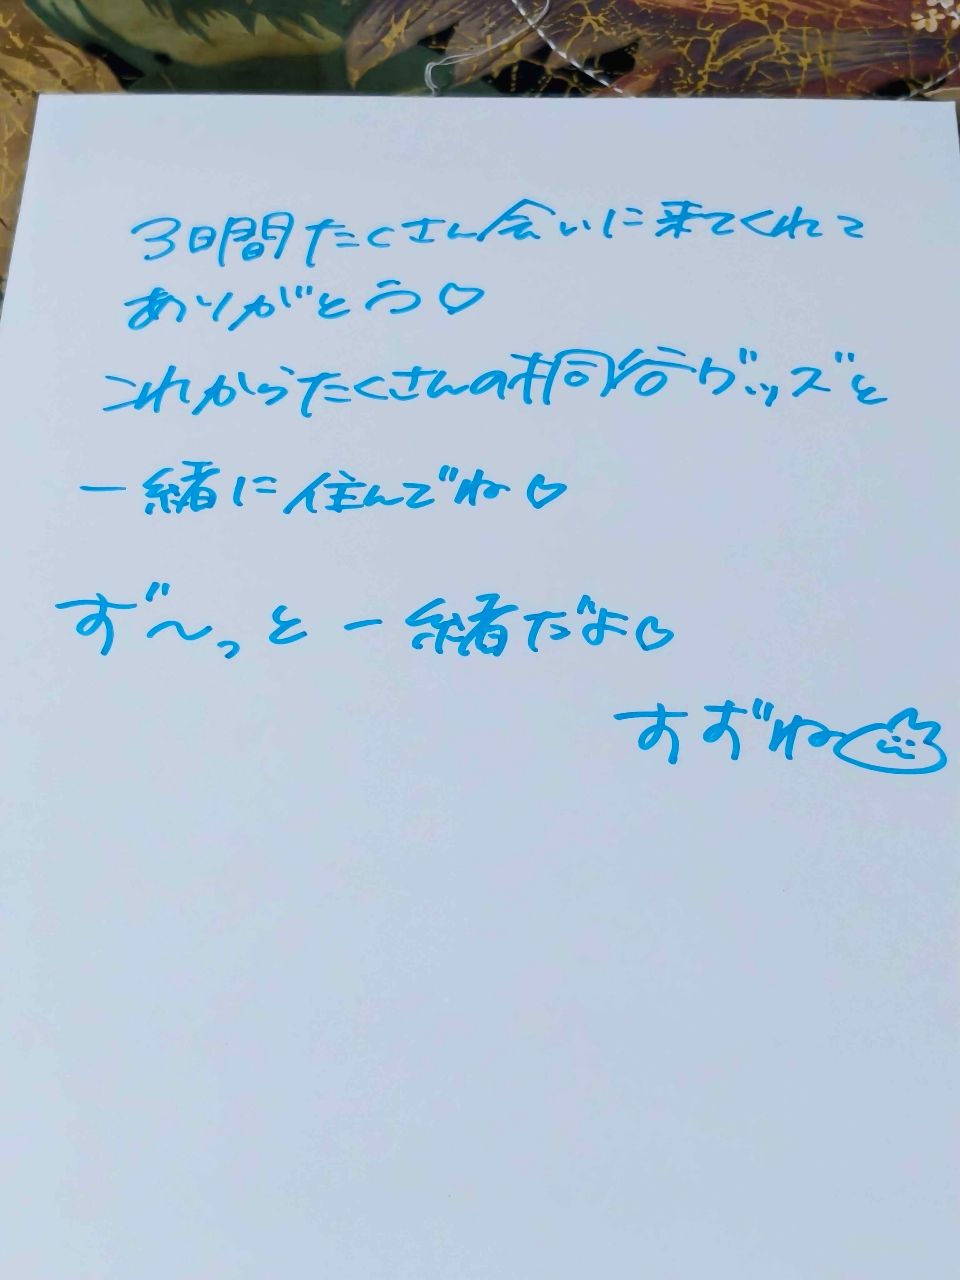 3日間たくさん会いに来てくれて
ありがとう♡
これからたくさんの桐谷グッズと
一緒に住んでね♡
ず〜っと一緒だよ♡
すずね